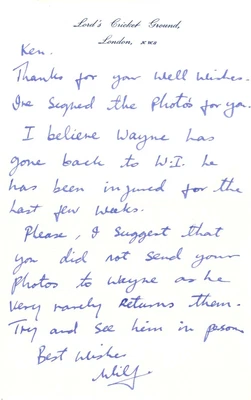 Lord's Cricket Ground,
London, NW8
Ken.
Thanks for your Well Wishes.
I've Signed the Photos for you.
I believe Wayne has
gone back to W.I. he
has been injured for the
last few weeks.
Please, I suggest that
you did not send your
Photos to Wayne as he
Very rarely Returns them.
Try and see him in person
Best Wishes
Wilf